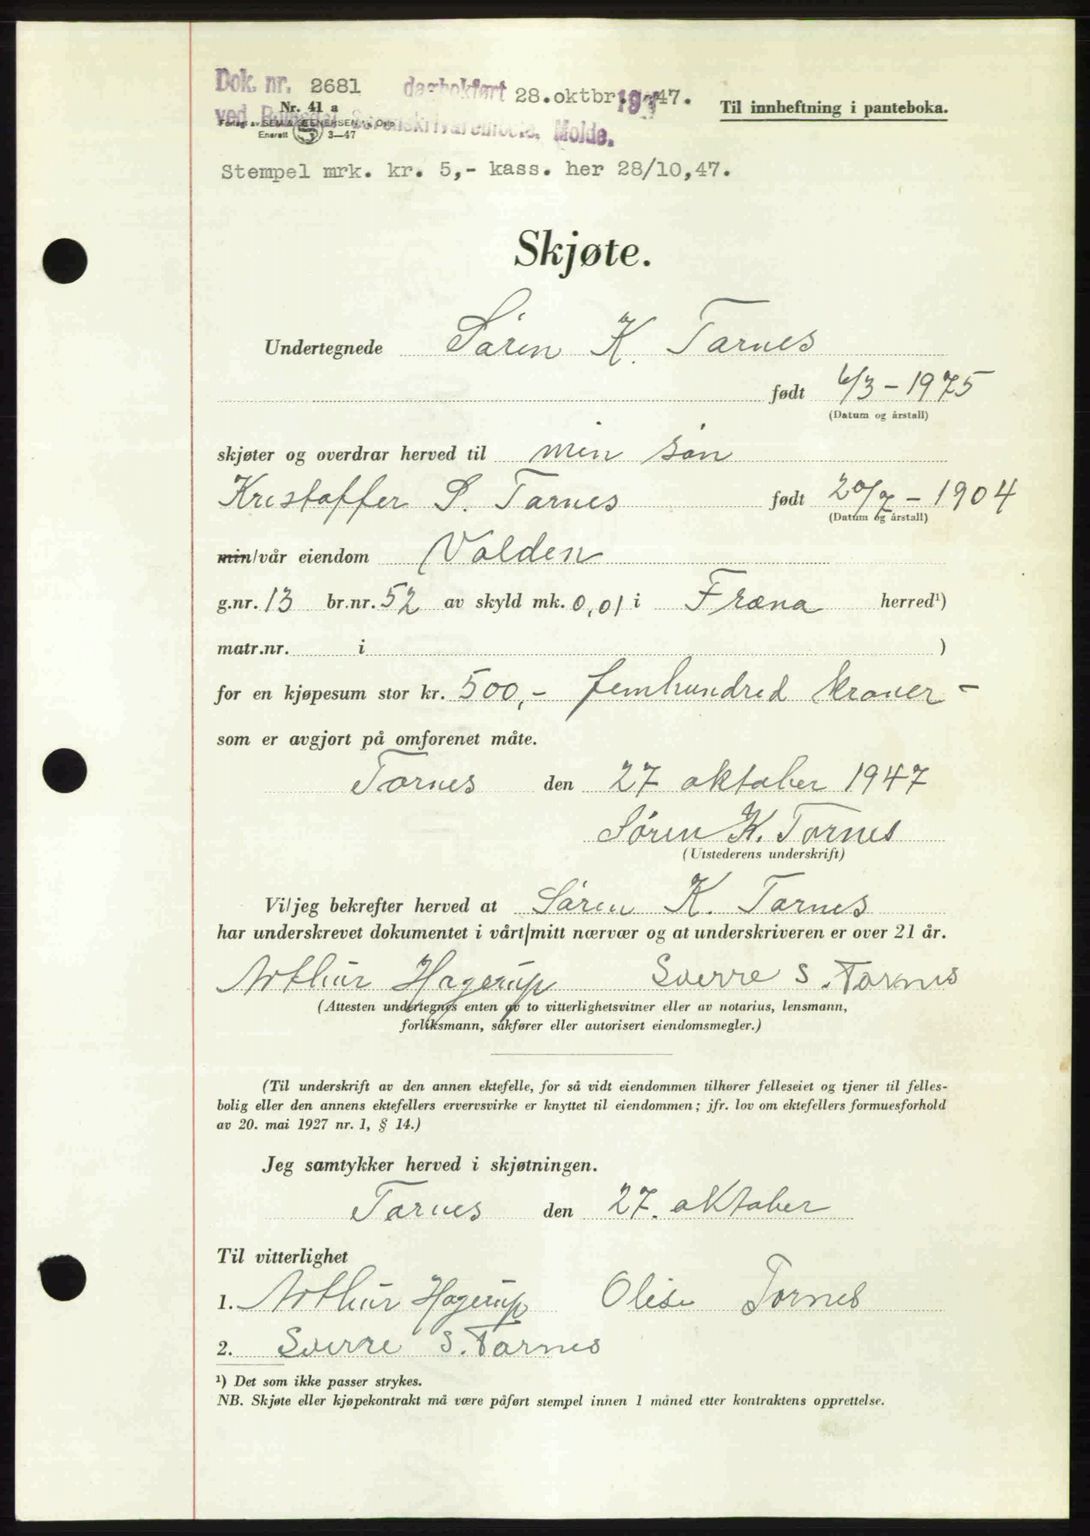 Dok. nr. 2681 dagbokført 28.oktbr. 1947.
Nr. 41 a
Til innheftning i panteboka.
ved Romsdal Sorenskriverembete, Molde.
Enerett 3—47
Stempel mrk. kr. 5,- kass. her 28/10,47.
Skjøte.
Undertegnede Søren K. Tornes
født 6/3 - 1975
(Datum og årstall)
skjøter og overdrar herved til min søn
Kristoffer S. Tornes født 20/7 - 1904
(Datum og årstall)
min/vår eiendom Volden
g.nr. 13 br.nr. 52 av skyld mk. 0,01 i Fræna herred¹)
matr.nr. i )
for en kjøpesum stor kr. 500,- femhundred kroner -
som er avgjort på omforenet måte.
Tornes den 27 oktober 1947
Søren K. Tornes
(Utstederens underskrift)
Vi/jeg bekrefter herved at Søren K. Tornes
har underskrevet dokumentet i vårt/mitt nærvær og at underskriveren er over 21 år.
Arthur Hagerup Sverre S. Tornes
(Attesten undertegnes enten av to vitterlighetsvitner eller av notarius, lensmann,
forliksmann, sakfører eller autorisert eiendomsmegler.)
(Til underskrift av den annen ektefelle, for så vidt eiendommen tilhører felleseiet og tjener til felles-
bolig eller den annens ektefellers ervervsvirke er knyttet til eiendommen; jfr. lov om ektefellers formuesforhold
av 20. mai 1927 nr. 1, § 14.)
Jeg samtykker herved i skjøtningen.
Tornes den 27. oktober
Til vitterlighet
1. Arthur Hagerup Olise Tornes
2. Sverre S. Tornes
¹) Det som ikke passer strykes.
NB. Skjøte eller kjøpekontrakt må være påført stempel innen 1 måned etter kontraktens opprettelse.